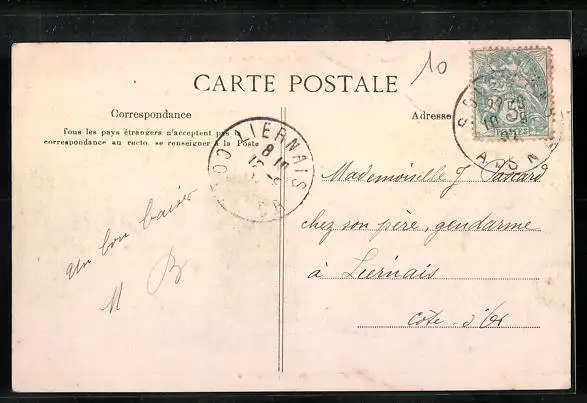 10
CARTE POSTALE
Correspondance
Tous les pays étrangers n'acceptent pas la
correspondance au recto. se renseigner à la Poste
Adresse
LIERNAIS
8
12
COTE
POSTES
5
AISNE
un bon baiser
M B
Mademoiselle J
chez son père, gendarme
à Liernais
Côte-d'Or